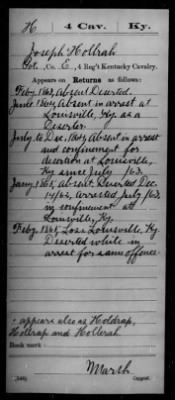 H 4 Cav. Ky.
Joseph Hollrah
Pvt., Co. E, 4 Reg't Kentucky Cavalry.
Appears on Returns as follows:
Feby. 1863, Absent Deserted.
June 1864, Absent in arrest at
Louisville, Ky as a
Deserter.
July to Dec. 1864, Absent in arrest
and confinement for
desertion at Louisville,
Ky since July /63.
Jany 1865, Absent. Deserted Dec.
/62, Arrested July /63,
in confinement at
Louisville, Ky.
Feby. 1865, Loss Louisville, Ky.
Deserted while in
arrest for same offence.
appears also as Holdrap,
Holtrap and Hollerah
Book mark:
Marsh
(546) Copyist.